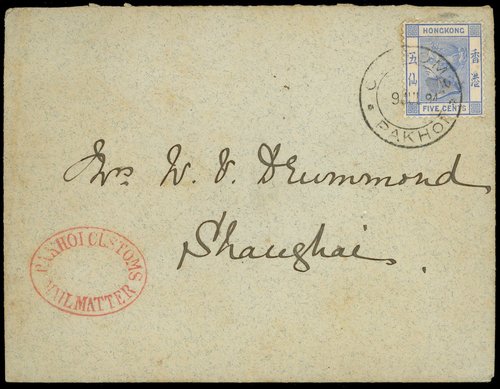 HONGKONG
五仙
香港
FIVE CENTS
CUSTOMS
PAKHOI
Mrs W. V. Drummond
Shanghai.
PAKHOI CUSTOMS
MAIL MATTER